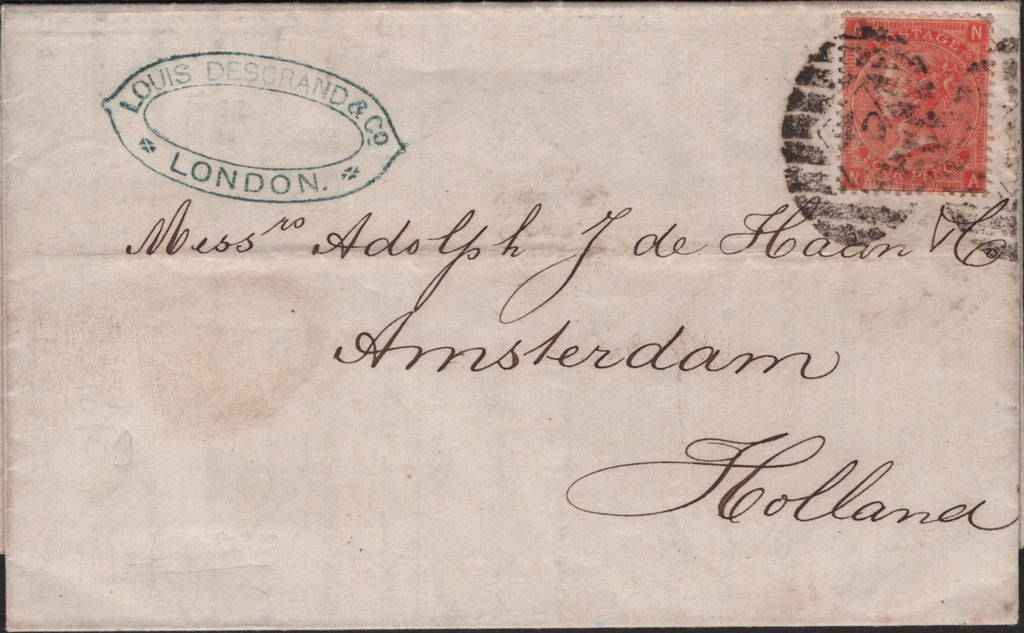 LOUIS DESGRAND & Co
LONDON.
N
POSTAGE
Messrs Adolph J de Haan & Co
FOUR PENCE
N A
Amsterdam
Holland